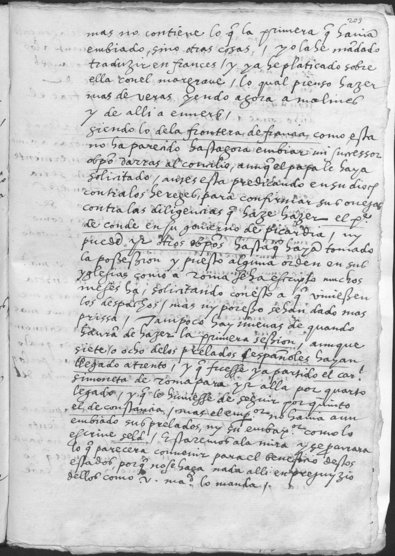 203
mas no contiene lo q̃ la primera q̃ havia
embiado, sino otras cosas, / yo la he mãdado
traduzir en frances / y ya he platicado sobre
ella con el marcgrave, / lo qual pienso hazer
mas de veras, yendo agora a malines
y de alli a enveres /
siendo lo de la frontera de francia, como esta
no ha parecido hasta agora embiar mi sucessor
obpõ darras al concilio, aunq̃ el papa le haya
solicitado, / antes esta predicando en su dioc̃
contra los hereges, para confirmar sus ovejas
contra las diligencias q̃ haze hazer el p̃e
de conde en su govierno de picardia, / ny
pueden yr otros obpõs hasta q̃ hayã tomado
la possession, y puesto alguna orden en sus
yglesias como a Roma se ha escripto muchos
meses ha, solicitando con esto a q̃ viniessen
los despachos, / mas ny por esso se han dado mas
prissa, / Tampoco hay nuevas de quando
havrã de hazer la primera session, / aunque
siete, o ocho de los prelados españoles hayan
llegado a trento, / y q̃ fuesse ya partido el car.l
simoneta de Roma para yr alla por quarto
legado, / y q̃ lo huviesse de seguir por quinto
el de constancia, / mas el emp.or no havia aun
embiado sus prelados, ny su embax.or como lo
escrive seld, / Estaremos a la mira, y se procurara
lo q̃ parecera convenir para el beneficio destos
estados, porq̃ no se haga nada alli en prejuyzio
dellos como v. ma.d lo manda, /